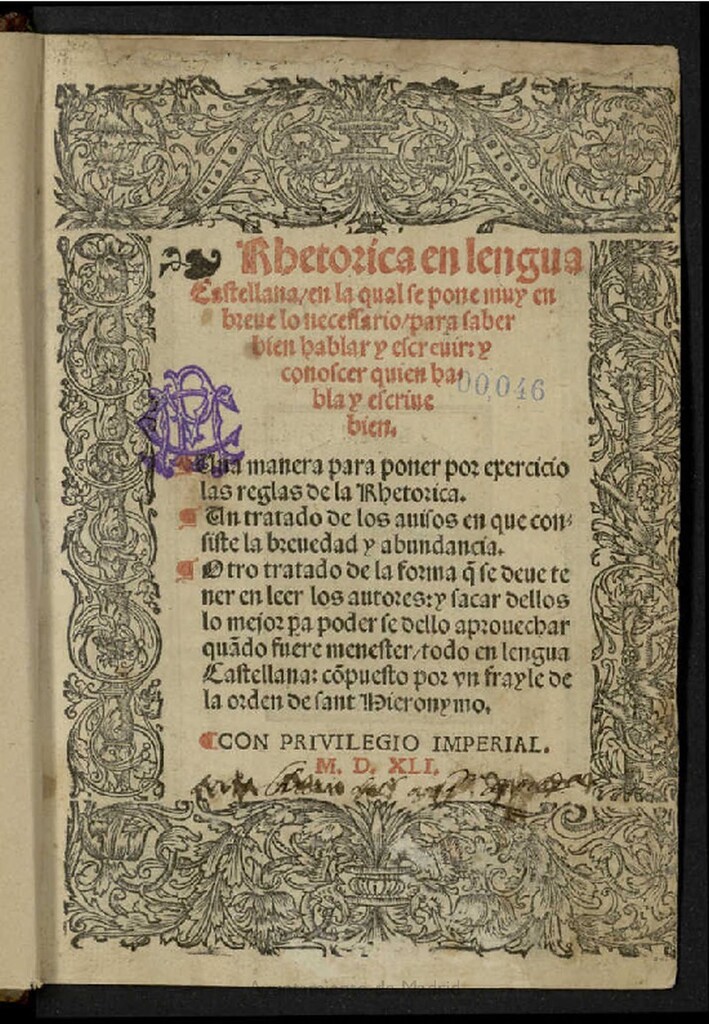 Rhetorica en lengua
Castellana/en la qual se pone muy en
breue lo necessario/para saber
bien hablar y escreuir: y
conoscer quien ha-
bla y escriue
bien.
00,046
Una manera para poner por exercicio
las reglas de la Rhetorica.
¶ Un tratado de los auisos en que con-
siste la breuedad y abundancia.
¶ Otro tratado de la forma q̃ se deue te
ner en leer los autores: y sacar dellos
lo mejor pa poder se dello aprouechar
quãdo fuere menester/todo en lengua
Castellana: cõpuesto por vn frayle de
la orden de sant Hieronymo.
¶CON PRIVILEGIO IMPERIAL.
M. D. XLI.
Ayuntamiento de Madrid